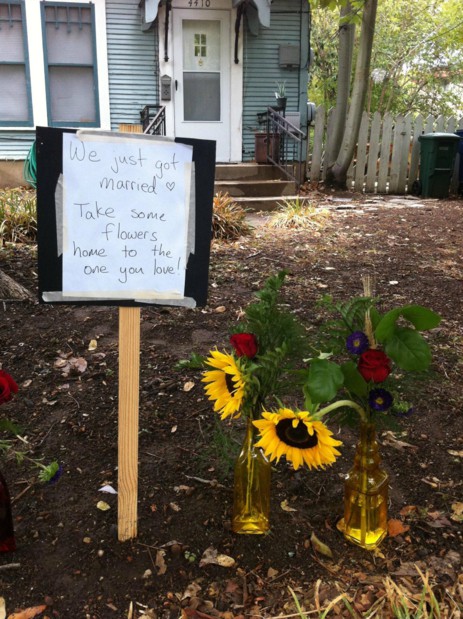 4410
We just got
married ♡
Take some
flowers
home to the
one you love!